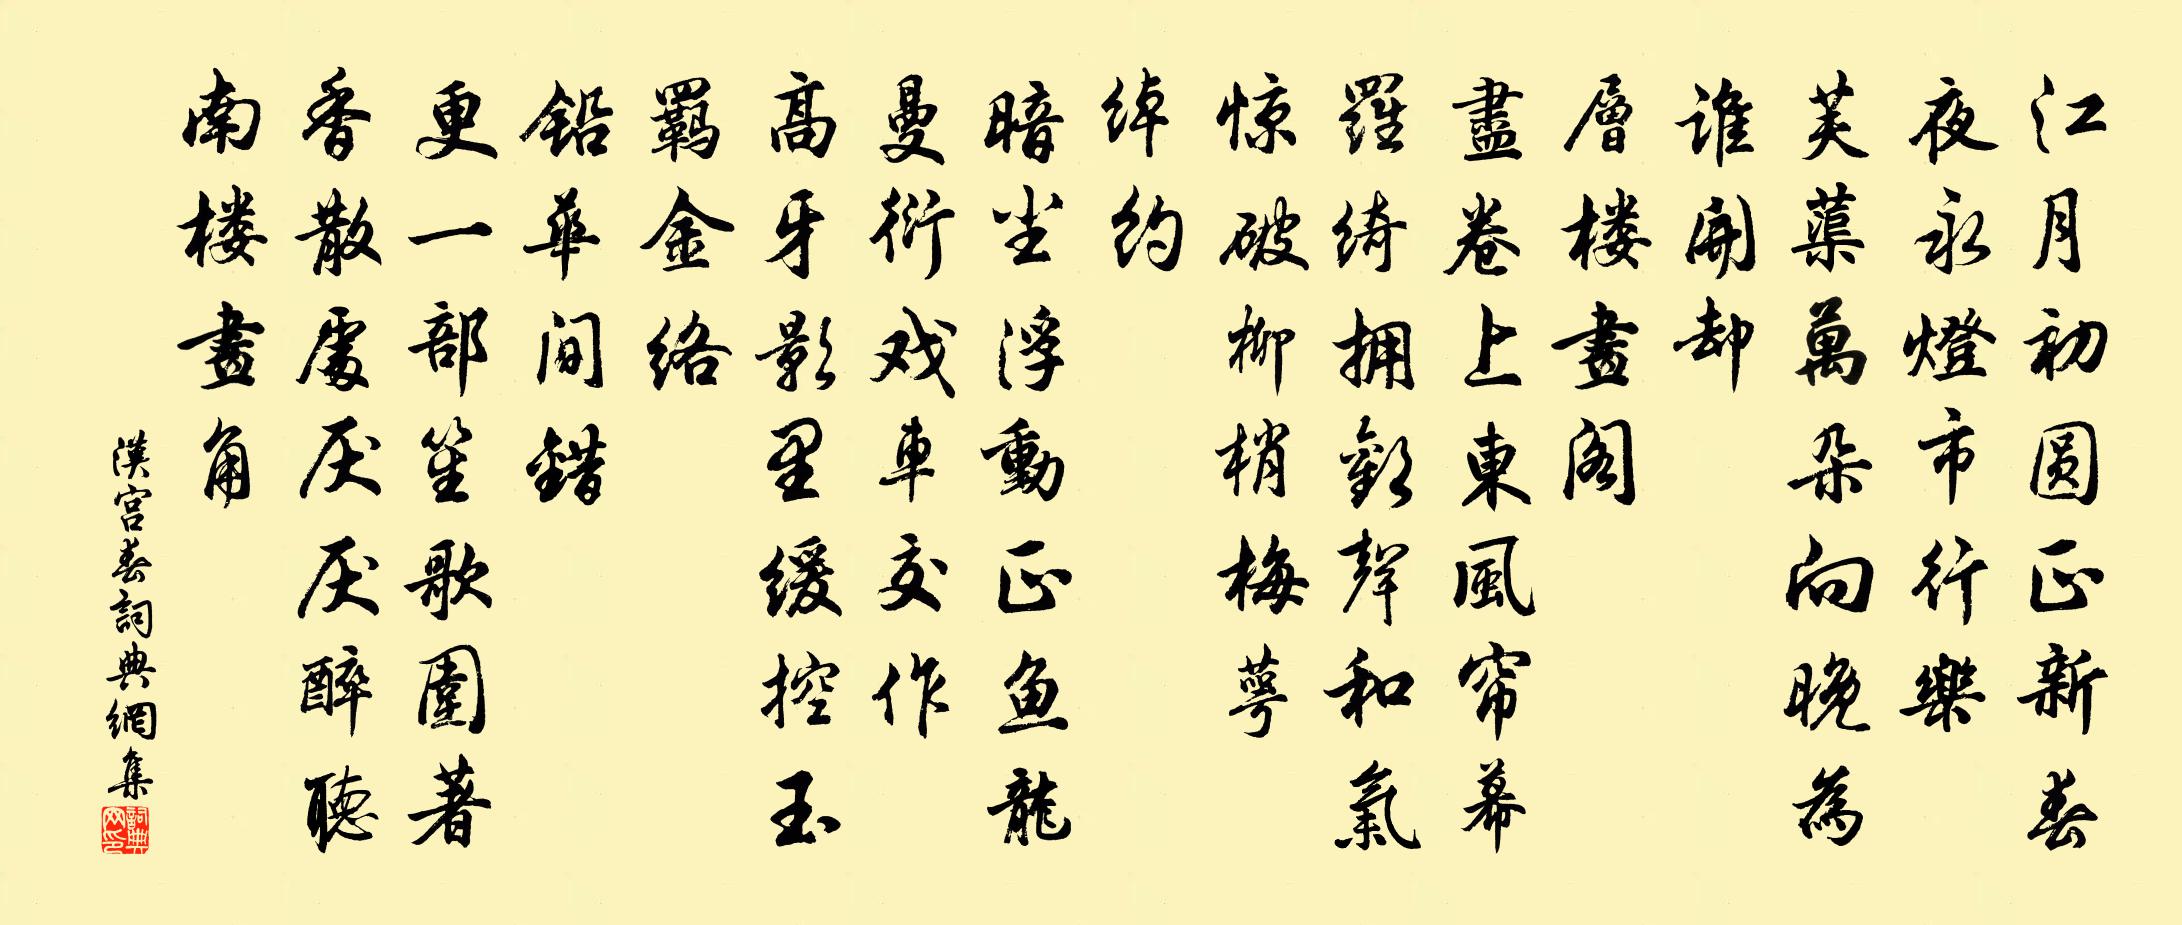 江月初圆正新春
夜永燈市行樂
芙蕖萬朵向晚為
谁開却
層楼畫閣
盡卷上東風帘幕
羅绮拥歡聲和氣
惊破柳梢梅萼
绰约
暗尘浮動正鱼龍
曼衍戏車交作
高牙影里缓控玉
羁金络
铅華间錯
更一部笙歌圍著
香散處厌厌醉聽
南楼畫角
漢宫春詞典網集
詞典
网印